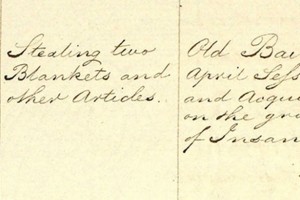 Stealing two
Blankets and
other Articles.
Old Bai
April Sess
and Acqui
on the gro
of Insan